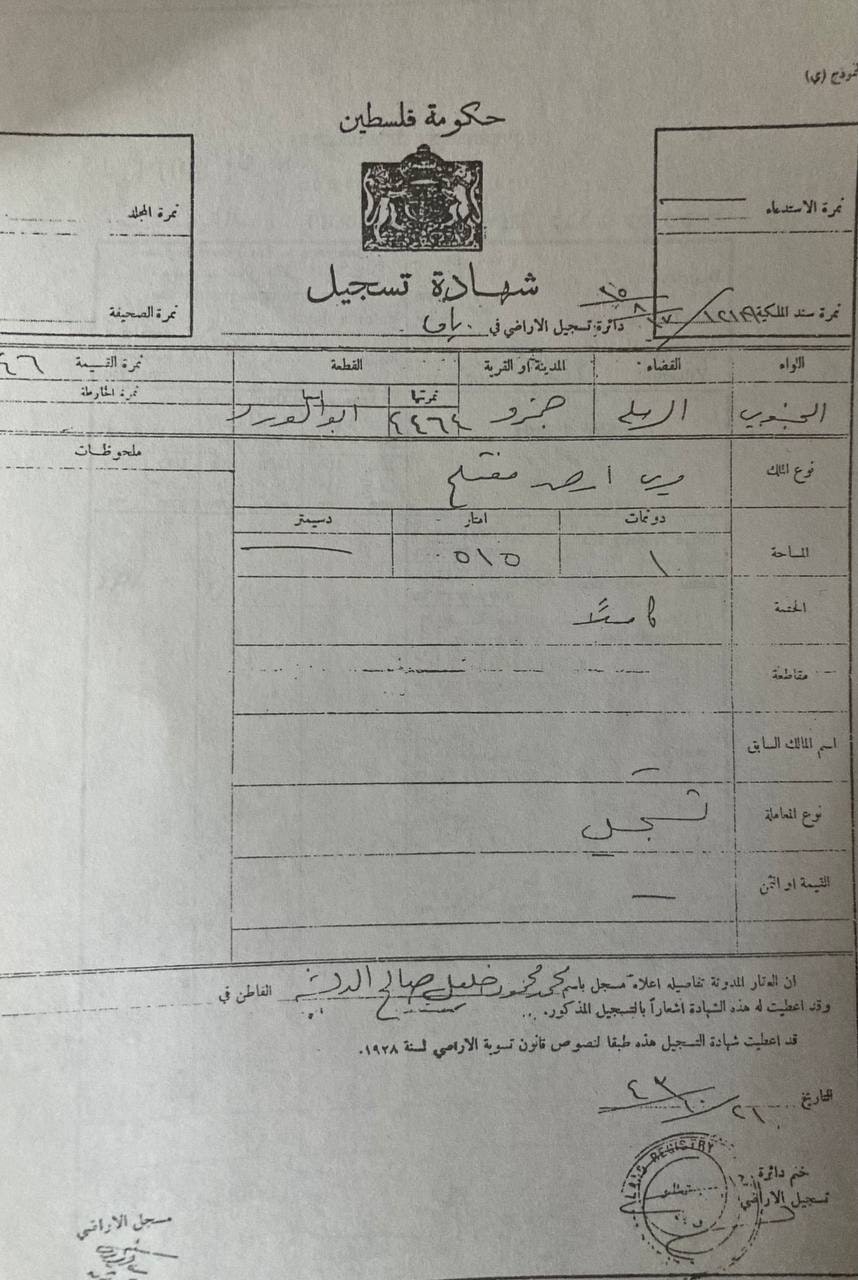 نموذج (ي)
حكومة فلسطين
نمرة الاستدعاء
نمرة المجلد
شهادة تسجيل
نمرة سند الملكية
دائرة تسجيل الاراضي في يافا
نمرة الصحيفة
اللواء القضاء المدينة او القرية القطعة نمرة القسيمة ٤٦
نمرتها نمرة الخارطة
الجنوبي الرملة جمزو ٤٤٦٤
ملحوظات
نوع الملك ميري ارض مفتلح
دونمات امتار دسيمتر
المساحة ١ ٥١٥ —
الحصة كاملا
مقاطعة
اسم المالك السابق —
نوع المعاملة تسجيل
القيمة او الثمن —
ان العقار المدونة تفاصيله اعلاه مسجل باسم محمد محمود خليل صالح القاطن في
وقد اعطيت له هذه الشهادة اشعاراً بالتسجيل المذكور.
قد اعطيت شهادة التسجيل هذه طبقا لنصوص قانون تسوية الاراضي لسنة ١٩٢٨.
التاريخ ٢١/١٠/٤٣
LAND REGISTRY
ختم دائرة
تسجيل الاراضي
مسجل الاراضي